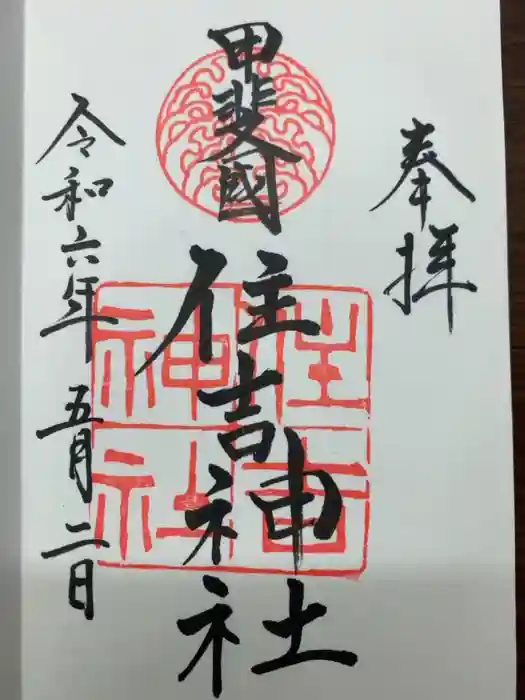 奉拝
甲斐國
住吉神社
住吉
神社
令和六年 五月 二日